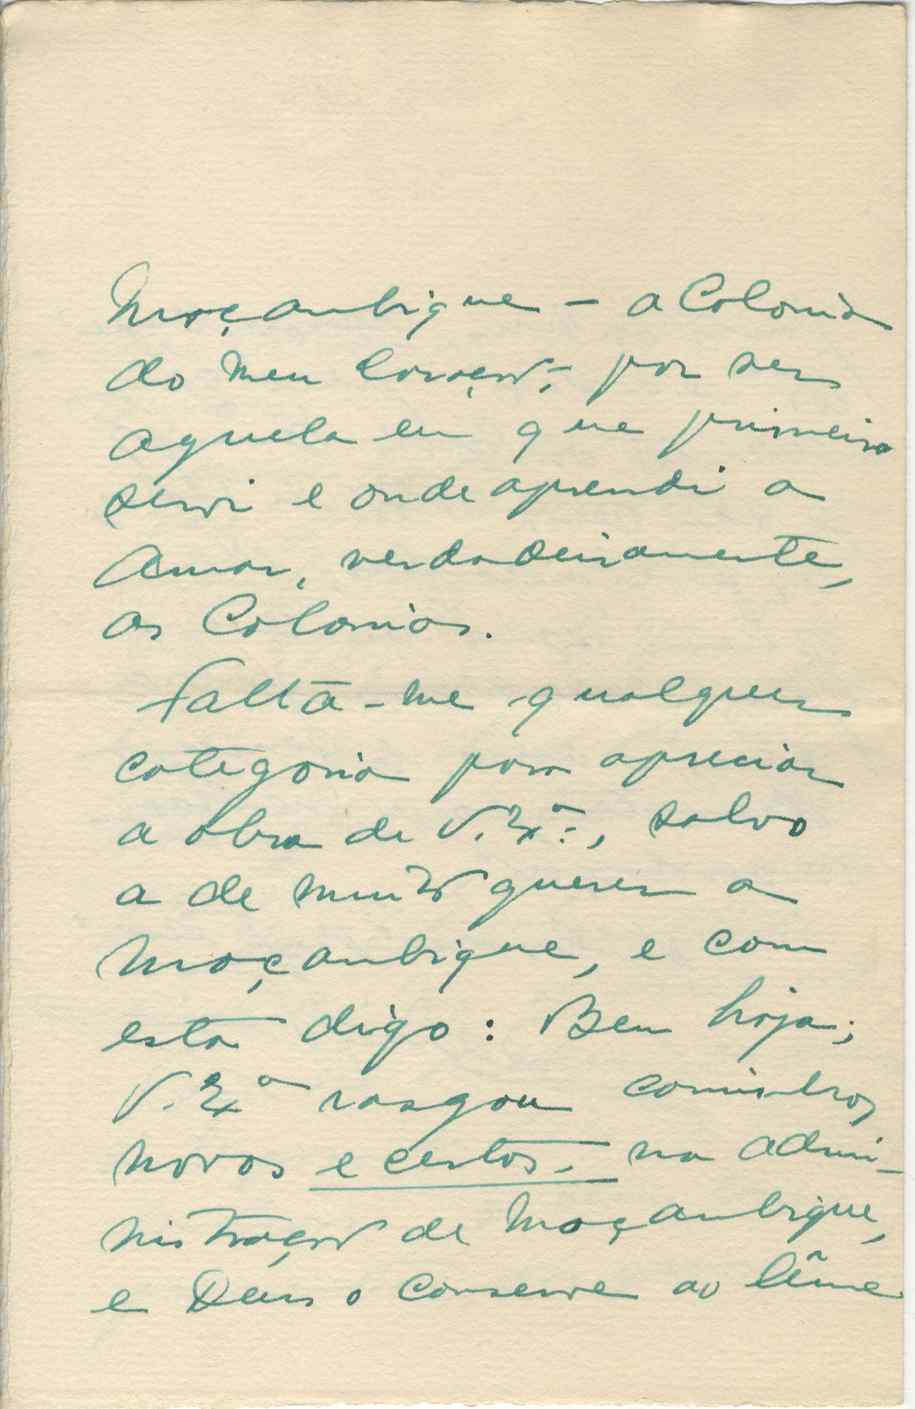 Moçambique – a Colonia
do meu Coração, – por ser
aquela em que primeiro
servi e onde aprendi a
Amar, verdadeiramente,
as Colonias.
Falta-me qualquer
categoria para apreciar
a obra de V. Exª., salvo
a de muito querer a
Moçambique, e com
esta digo: Bem haja;
V. Exª rasgou caminhos
novos e certos – na admi-
nistração de Moçambique,
e Deus o conserve ao lême